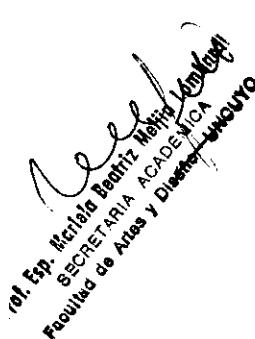 Prof. Esp. Mariela Beatriz Mejía
SECRETARIA ACADÉMICA
Facultad de Artes y Diseño UNCUYO